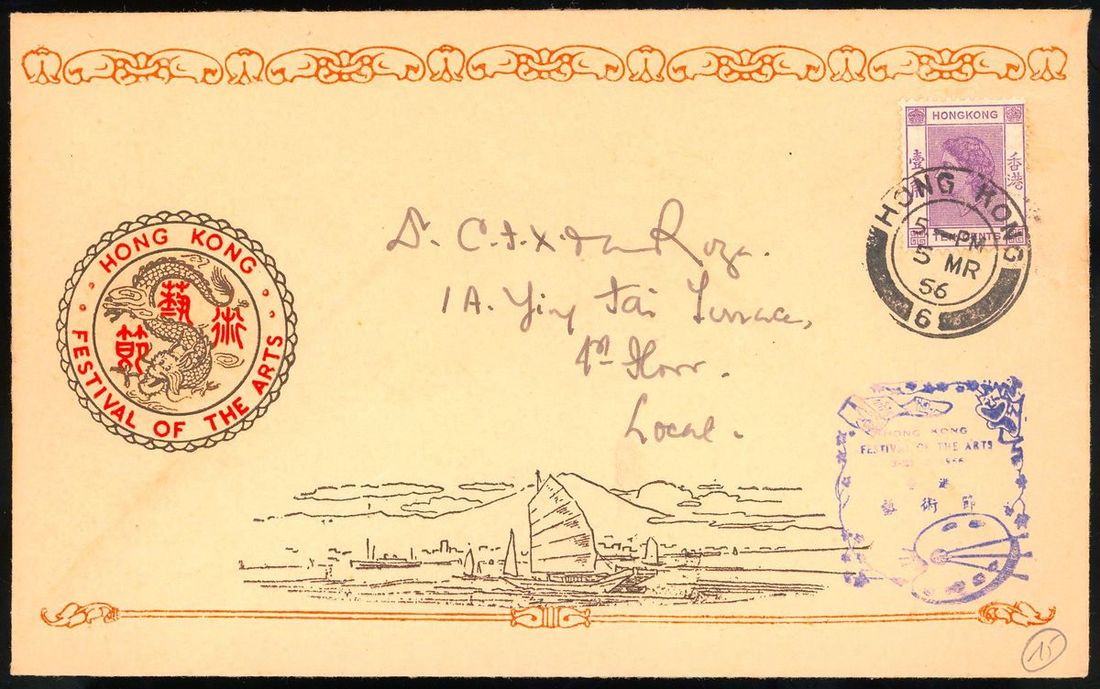 HONGKONG
壹
香港
TEN CENTS
HONG KONG
5 PM
5 MR
56
6
HONG KONG
藝術節
FESTIVAL OF THE ARTS
Dr. C. F. X. da Roza.
1A. Ying Fai Terrace,
1st Floor.
Local.
HONG KONG
FESTIVAL OF THE ARTS
港
藝術節
15